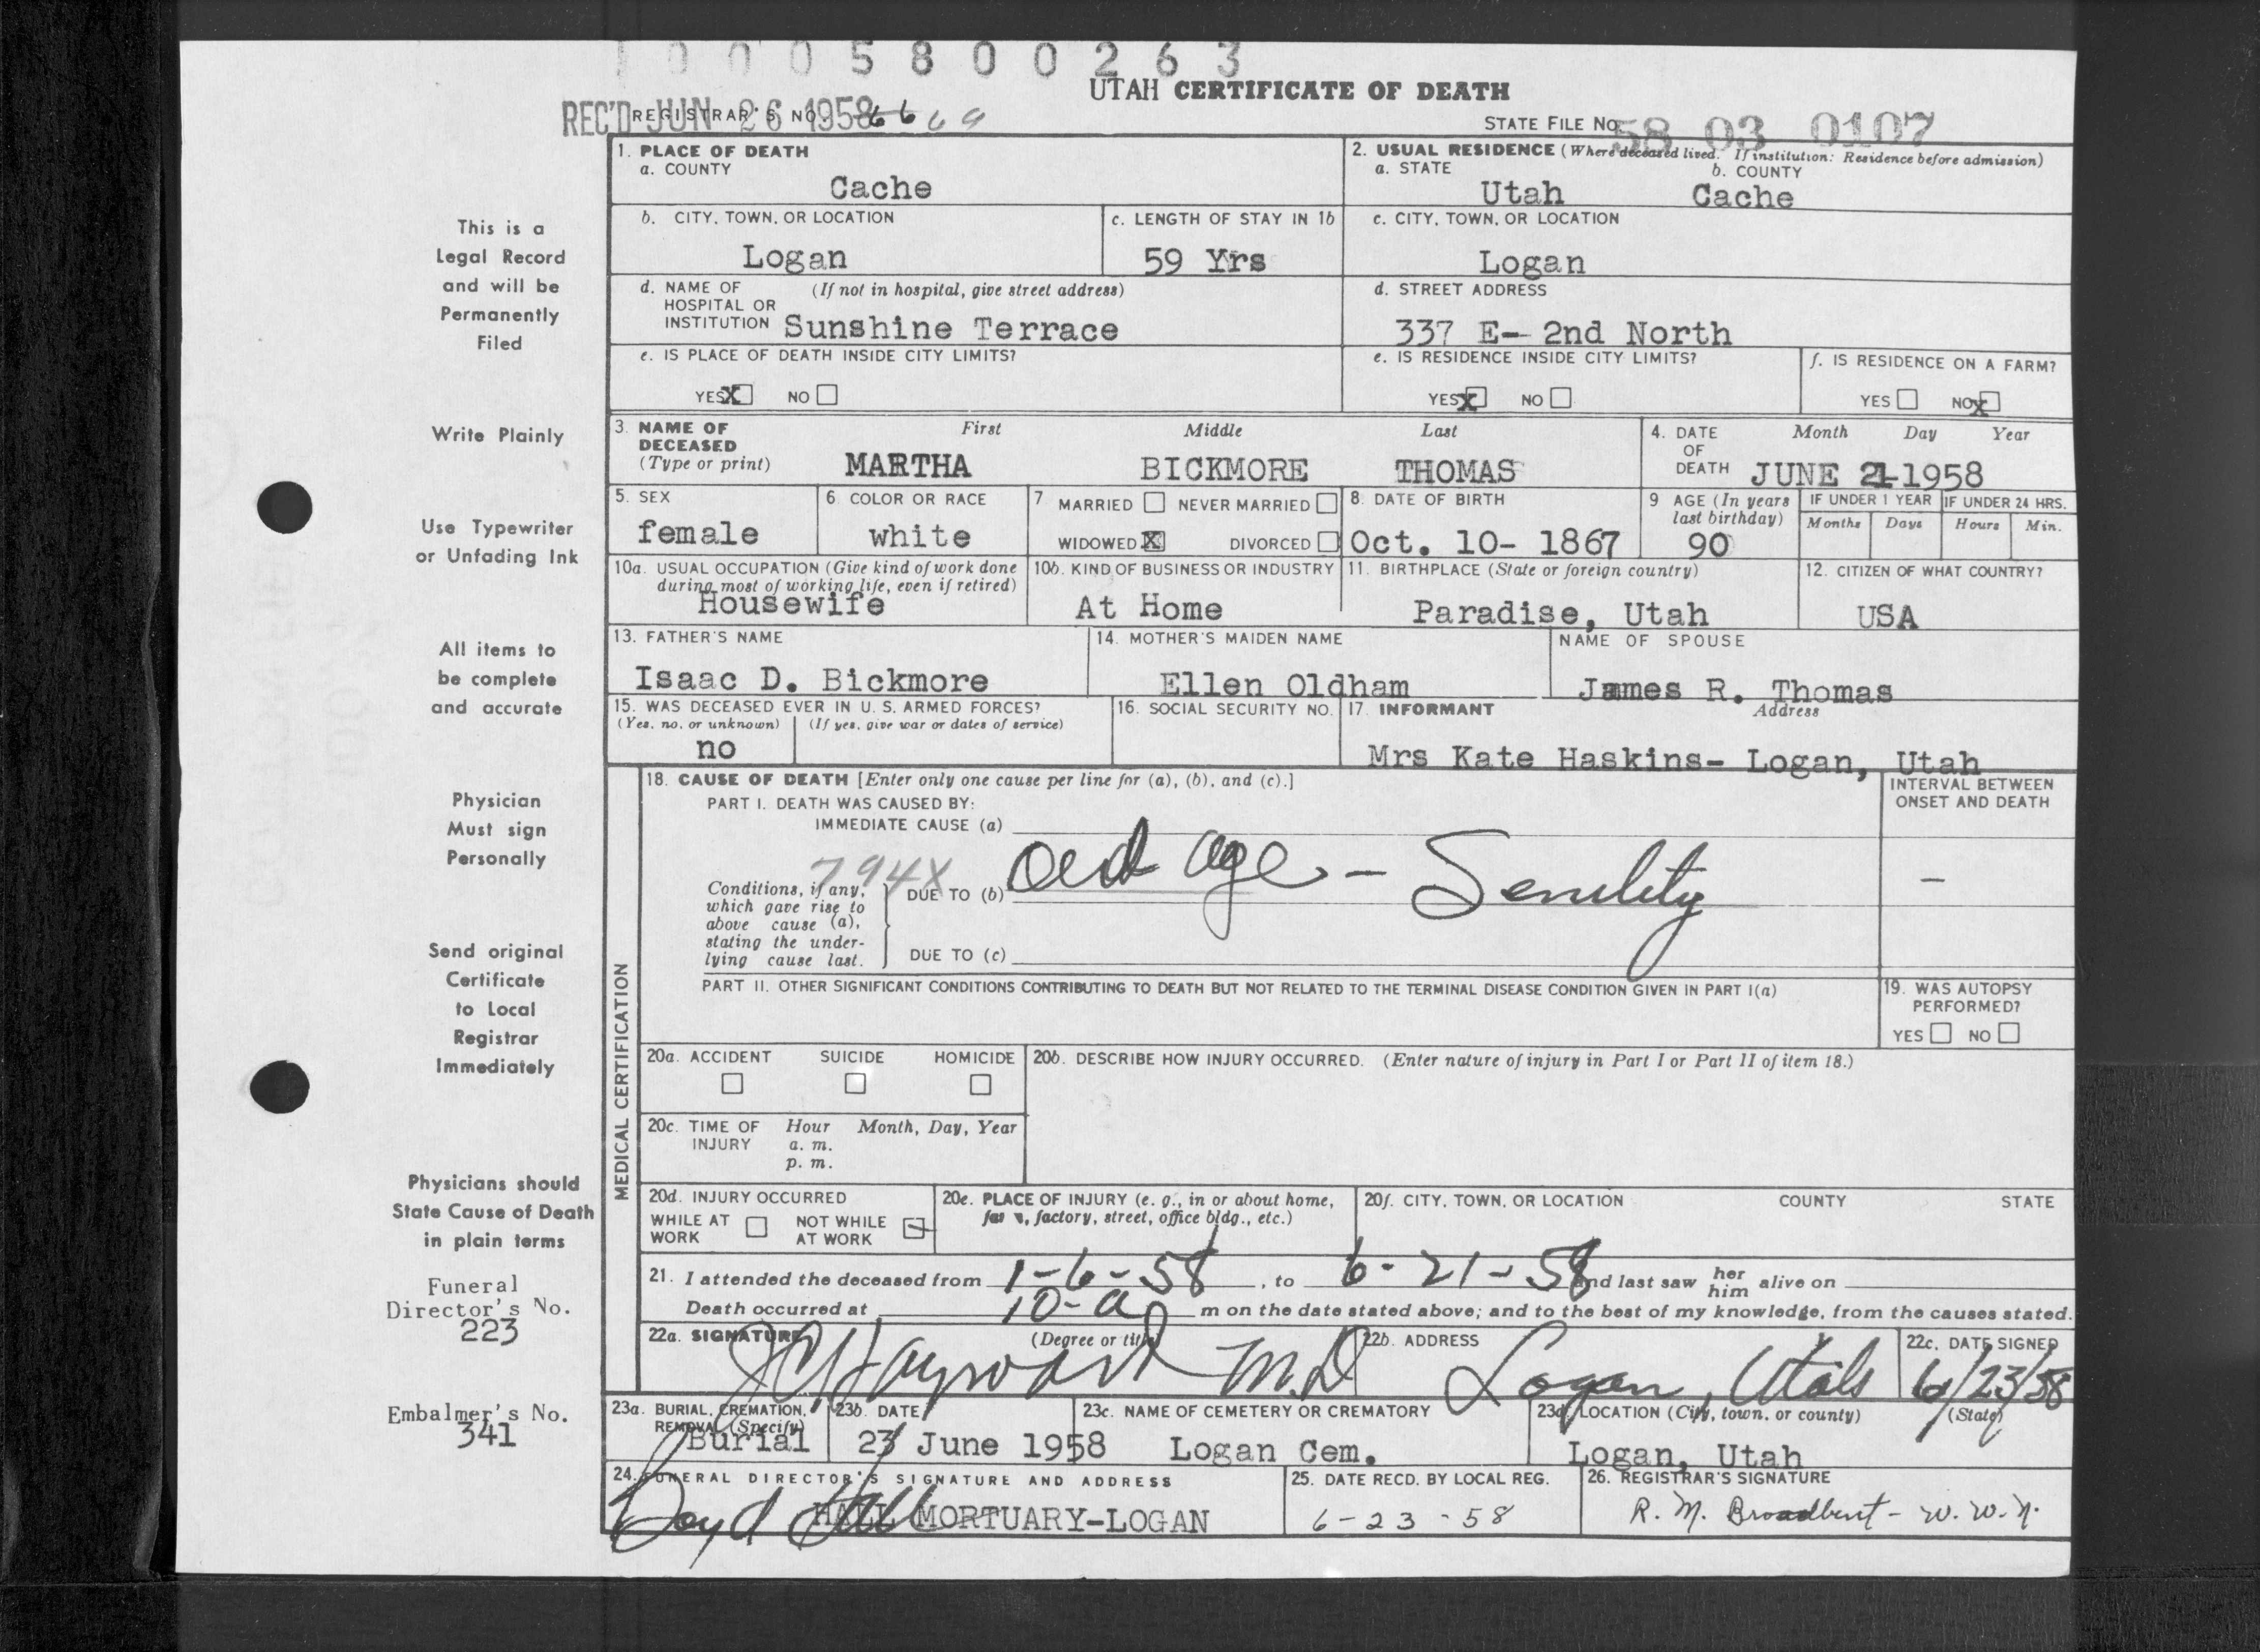 1 0 0 0 5 8 0 0 2 6 3
UTAH CERTIFICATE OF DEATH
REC'D JUN 26 1958
REGISTRAR'S NO. 66 69
STATE FILE NO. 58 03 0107
1. PLACE OF DEATH
a. COUNTY
Cache
2. USUAL RESIDENCE (Where deceased lived. If institution: Residence before admission)
a. STATE b. COUNTY
Utah Cache
b. CITY, TOWN, OR LOCATION
Logan
c. LENGTH OF STAY IN 1b
59 Yrs
c. CITY, TOWN, OR LOCATION
Logan
d. NAME OF HOSPITAL OR INSTITUTION (If not in hospital, give street address)
Sunshine Terrace
d. STREET ADDRESS
337 E-- 2nd North
e. IS PLACE OF DEATH INSIDE CITY LIMITS?
YES X NO
e. IS RESIDENCE INSIDE CITY LIMITS?
YES X NO
f. IS RESIDENCE ON A FARM?
YES NO X
3. NAME OF DECEASED (Type or print) First Middle Last
MARTHA BICKMORE THOMAS
4. DATE OF DEATH Month Day Year
JUNE 21-1958
5. SEX
female
6. COLOR OR RACE
white
7 MARRIED NEVER MARRIED
WIDOWED X DIVORCED
8. DATE OF BIRTH
Oct. 10- 1867
9 AGE (In years last birthday)
90
IF UNDER 1 YEAR IF UNDER 24 HRS.
Months Days Hours Min.
10a. USUAL OCCUPATION (Give kind of work done during most of working life, even if retired)
Housewife
10b. KIND OF BUSINESS OR INDUSTRY
At Home
11. BIRTHPLACE (State or foreign country)
Paradise, Utah
12. CITIZEN OF WHAT COUNTRY?
USA
13. FATHER'S NAME
Isaac D. Bickmore
14. MOTHER'S MAIDEN NAME
Ellen Oldham
NAME OF SPOUSE
James R. Thomas
15. WAS DECEASED EVER IN U. S. ARMED FORCES?
(Yes, no, or unknown) (If yes, give war or dates of service)
no
16. SOCIAL SECURITY NO.
17. INFORMANT Address
Mrs Kate Haskins- Logan, Utah
MEDICAL CERTIFICATION
18. CAUSE OF DEATH [Enter only one cause per line for (a), (b), and (c).]
INTERVAL BETWEEN ONSET AND DEATH
PART I. DEATH WAS CAUSED BY:
IMMEDIATE CAUSE (a)
794X
Conditions, if any, which gave rise to above cause (a), stating the underlying cause last.
DUE TO (b) Old age - Senility -
DUE TO (c)
PART II. OTHER SIGNIFICANT CONDITIONS CONTRIBUTING TO DEATH BUT NOT RELATED TO THE TERMINAL DISEASE CONDITION GIVEN IN PART I(a)
19. WAS AUTOPSY PERFORMED?
YES NO
20a. ACCIDENT SUICIDE HOMICIDE
20b. DESCRIBE HOW INJURY OCCURRED. (Enter nature of injury in Part I or Part II of item 18.)
20c. TIME OF INJURY Hour Month, Day, Year
a. m.
p. m.
20d. INJURY OCCURRED
WHILE AT WORK NOT WHILE AT WORK
20e. PLACE OF INJURY (e. g., in or about home, farm, factory, street, office bldg., etc.)
20f. CITY, TOWN, OR LOCATION COUNTY STATE
21. I attended the deceased from 1-6-58, to 6-21-58 and last saw her him alive on
Death occurred at 10-a m on the date stated above; and to the best of my knowledge, from the causes stated.
22a. SIGNATURE (Degree or title)
J C Hayward M.D
22b. ADDRESS
Logan, Utah
22c. DATE SIGNED
6/23/58
23a. BURIAL, CREMATION, REMOVAL (Specify)
Burial
23b. DATE
23 June 1958
23c. NAME OF CEMETERY OR CREMATORY
Logan Cem.
23d. LOCATION (City, town, or county) (State)
Logan, Utah
24. FUNERAL DIRECTOR'S SIGNATURE AND ADDRESS
Boyd Hall
HALL MORTUARY-LOGAN
25. DATE RECD. BY LOCAL REG.
6-23-58
26. REGISTRAR'S SIGNATURE
R. M. Broadbent - W. W. N.
This is a
Legal Record
and will be
Permanently
Filed
Write Plainly
Use Typewriter
or Unfading Ink
All items to
be complete
and accurate
Physician
Must sign
Personally
Send original
Certificate
to Local
Registrar
Immediately
Physicians should
State Cause of Death
in plain terms
Funeral
Director's No.
223
Embalmer's No.
341